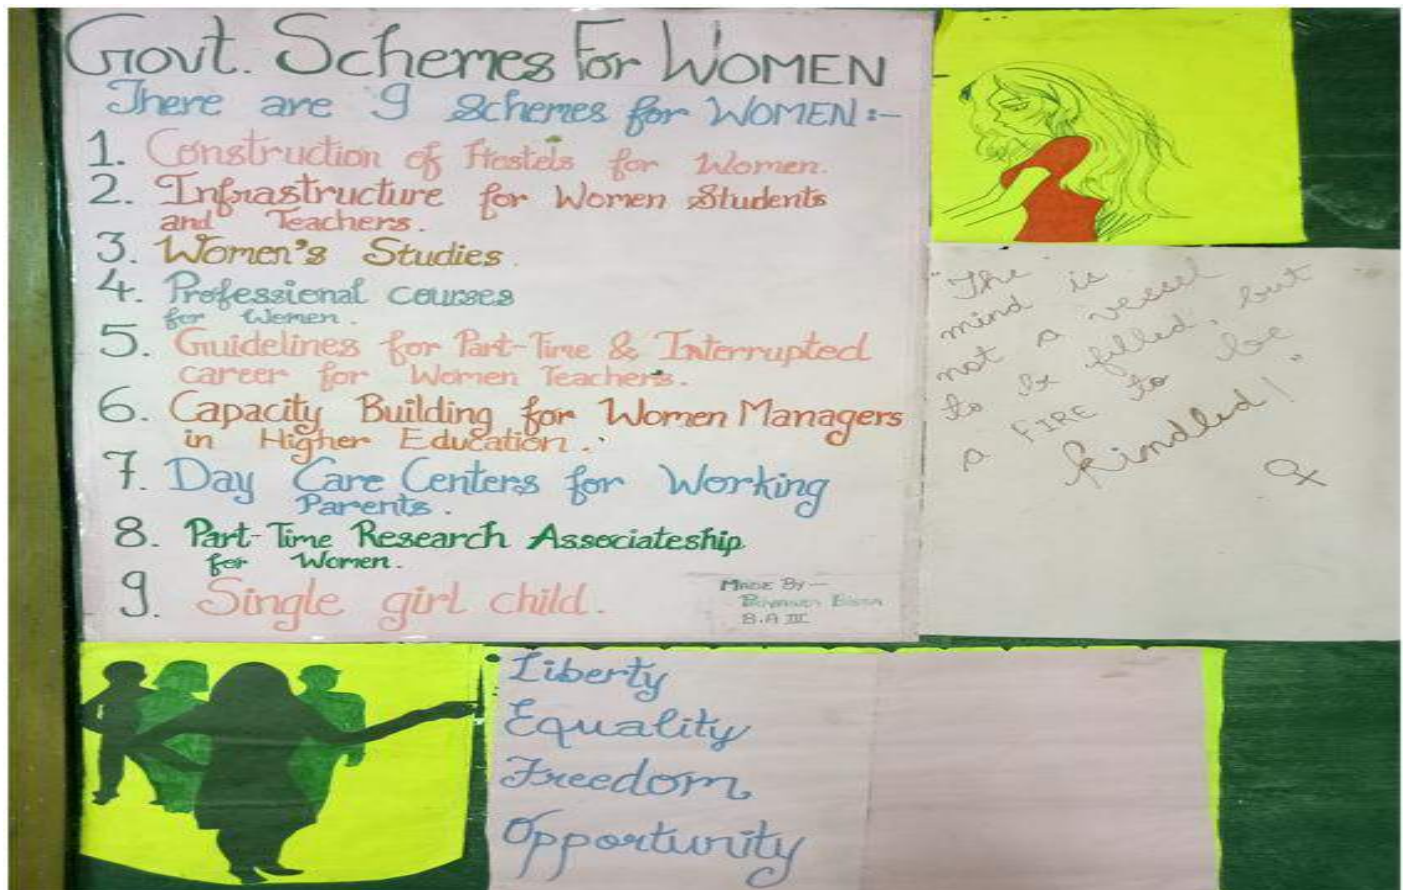 Govt. Schemes For WOMEN
There are 9 Schemes for WOMEN:-
1. Construction of Hostels for Women.
2. Infrastructure for Women Students
and Teachers.
3. Women's Studies.
4. Professional courses
for Women.
5. Guidelines for Part-Time & Interrupted
career for Women Teachers.
6. Capacity Building for Women Managers
in Higher Education.
7. Day Care Centers for Working
Parents.
8. Part-Time Research Associateship
for Women.
9. Single girl child.
MADE By —
B.A III
"The
mind is
not a vessel
to be filled, but
a FIRE to be
kindled!"
Liberty
Equality
Freedom
Opportunity